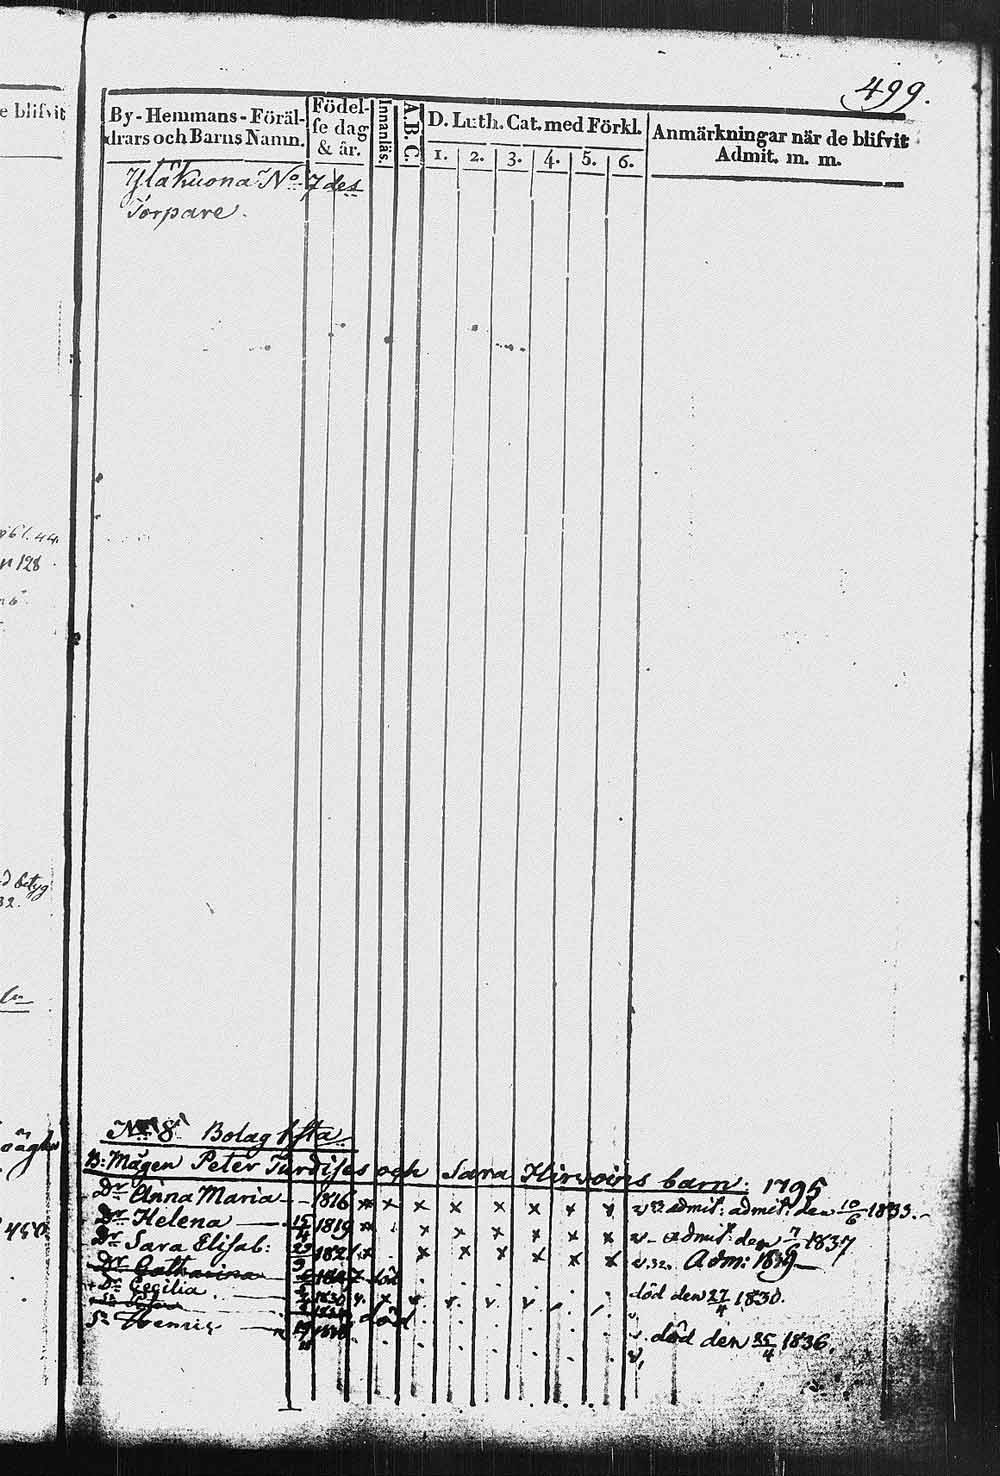 499.
e blifvit
By-Hemmans-Föräl-
drars och Barns Namn.
Födel-
se dag
& år.
Innanläs.
A.B.C.
D. Luth. Cat. med Förkl.
1. 2. 3. 4. 5. 6.
Anmärkningar när de blifvit
Admit. m. m.
Yläkuona No 7 des
Torpare.
128
betyg
32.
450.
No 8 Bolag 1sta
B: Mågen Peter Turdises och Sara Hirvoins barn. 1795
Dr Anna Maria - - 1816 x x x x x x x x admit: admit: den 10/6 1833.
Dr Helena 15/4 1819 x x x x x x x admit: den 7/7 1837
Dr Sara Elisab: 1821 x x x x x x x v. 32. Adm: 1839
Dr Catharina död död den 27/4 1830.
Dr Cecilia. 1830 v. x v v v v
död v död den 25/4 1836.
Sn Henric